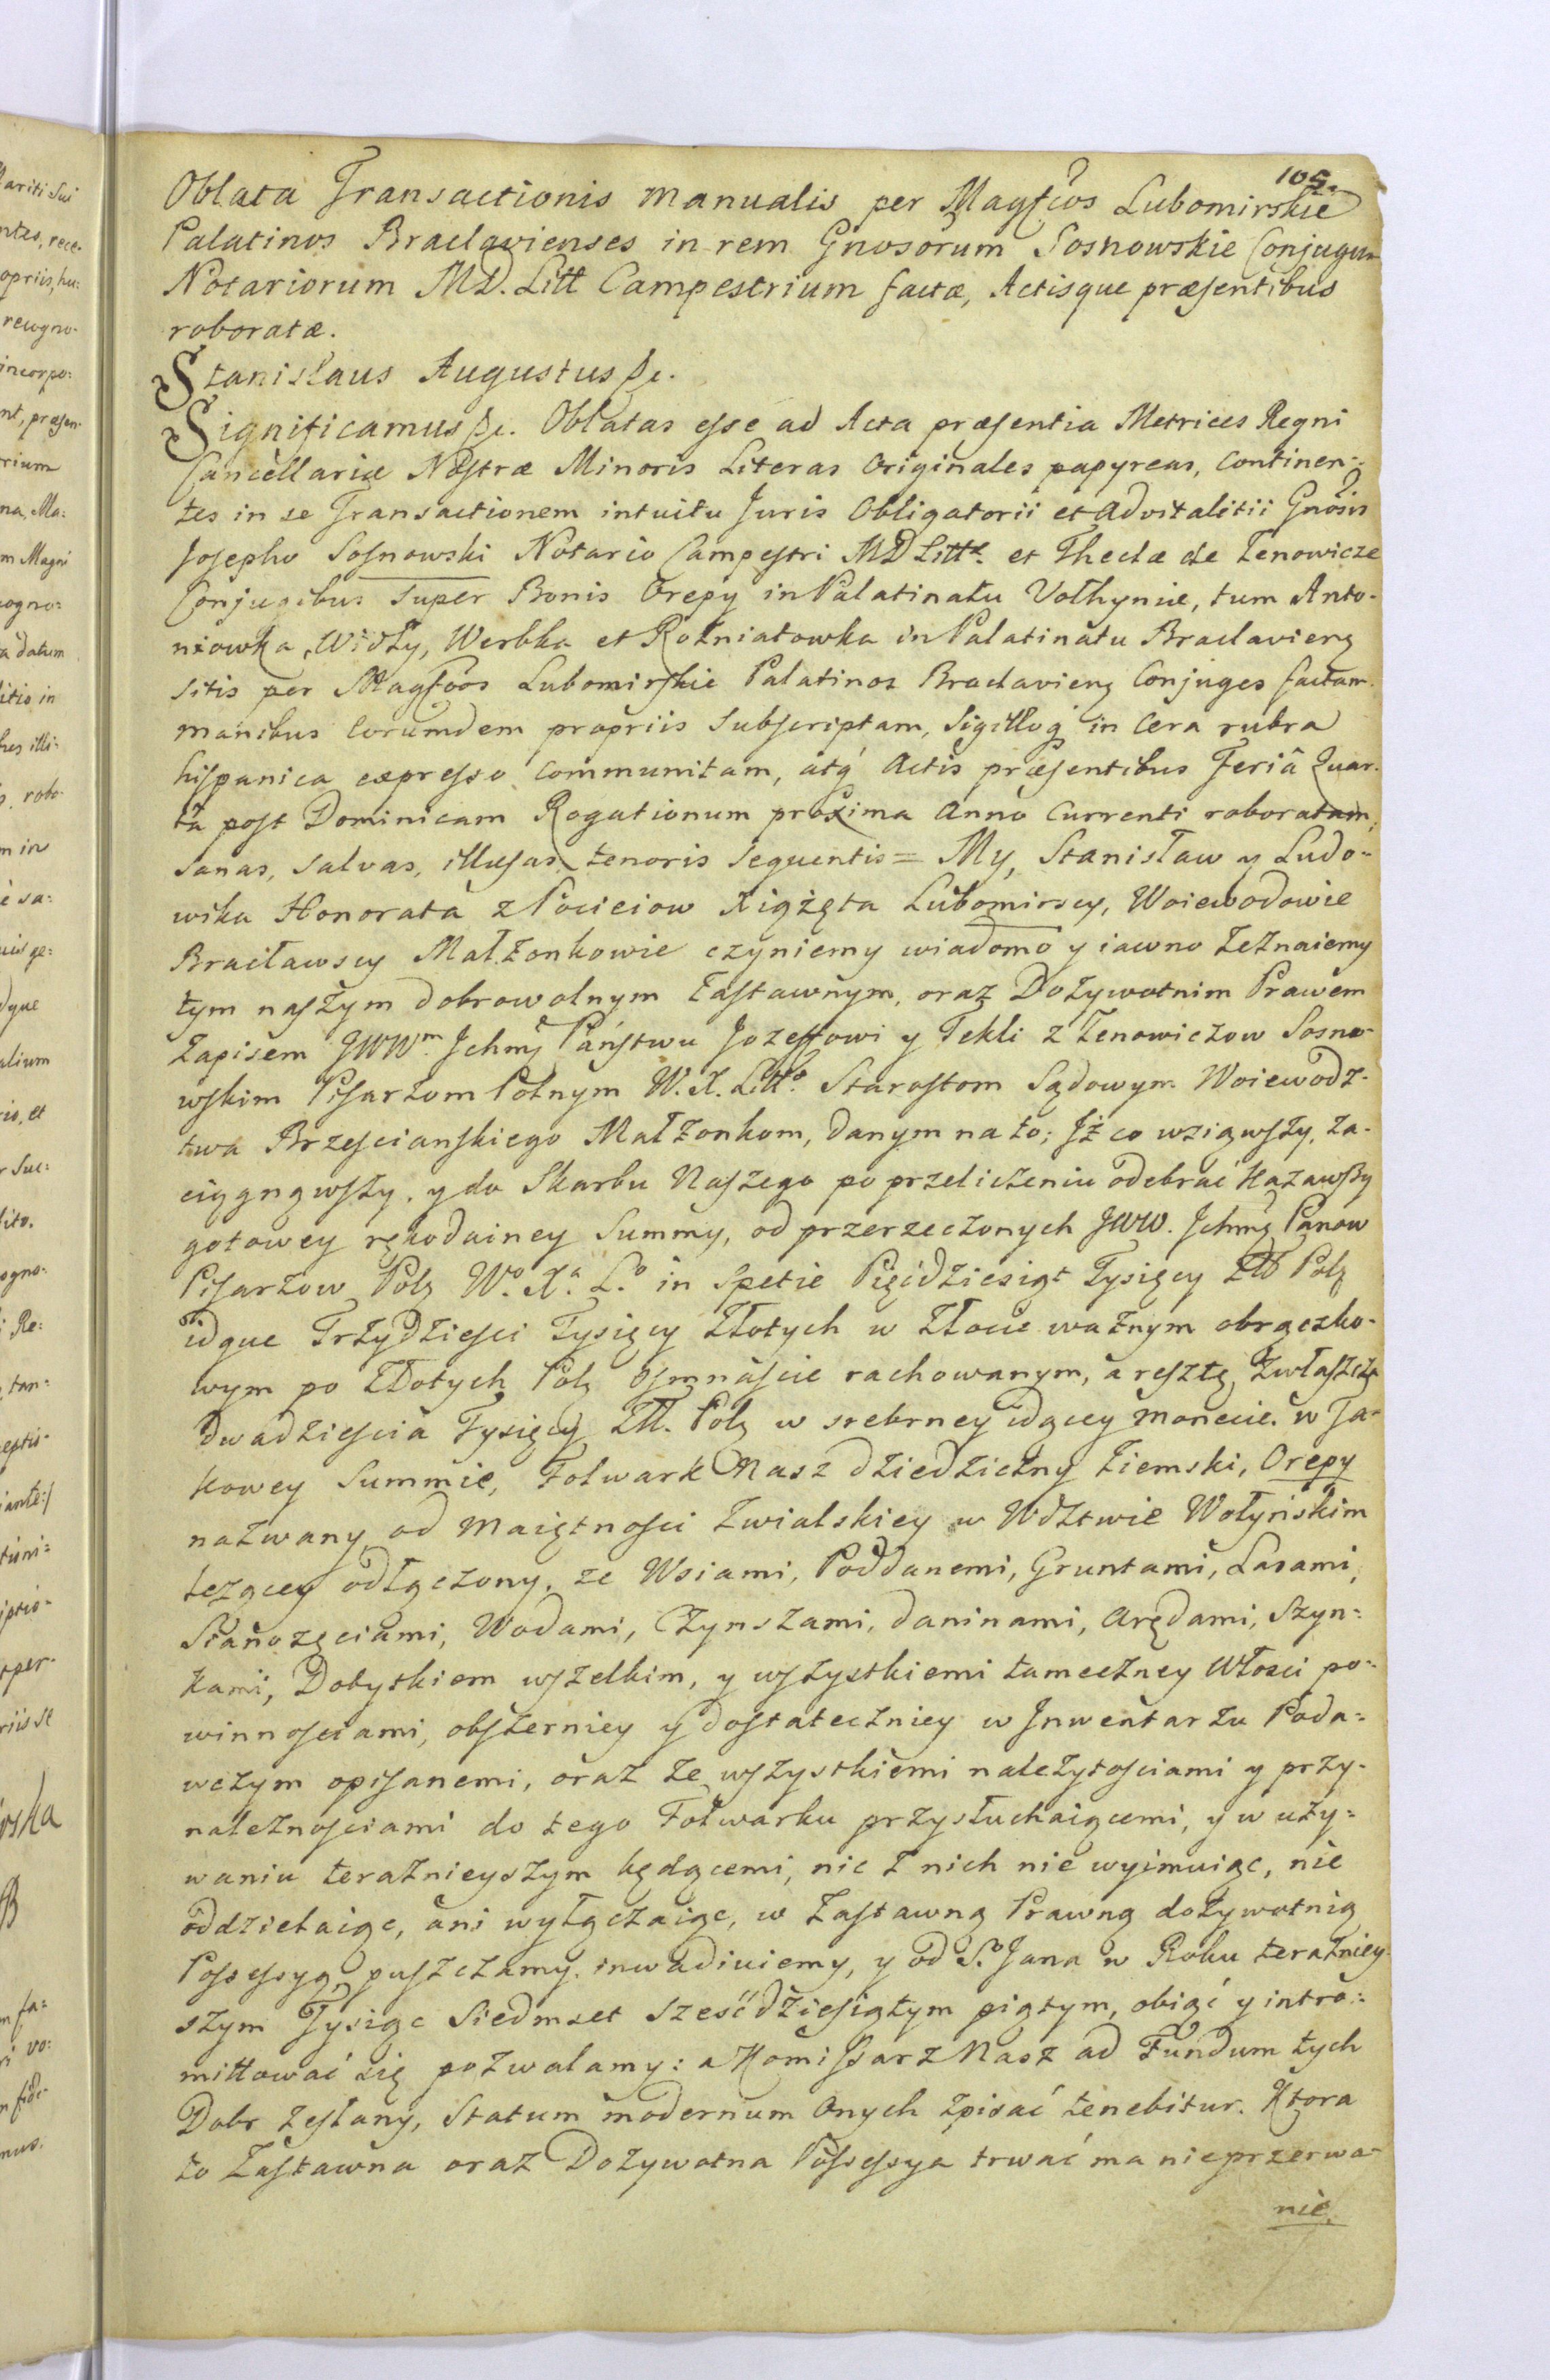 105.
Oblata Transactionis manualis per Magfcos Lubomirskie
Palatinos Braclavienses in rem Gnosorum Sosnowskie Conjugum
Notariorum M.D. Litt Campestrium factæ, Actisque præsentibus
roboratæ.
Stanislaus Augustus &c.
Significamus &c. Oblatas esse ad Acta præsentia Metrices Regni
Cancellariæ Nostræ Minoris Literas Originales papyreas, continen-
tes in se Transactionem intuitu Juris Obligatorii et advitalitii Gnosis
Josepho Sosnowski Notario Campestri MD Litt. et Theclæ de Zenowicze
Conjugibus super Bonis Orepy in Palatinatu Volhyniæ, tum Anto-
niowka, Widły, Werbka et Rożniatowka in Palatinatu Braclavieng
sitis per Magfcos Lubomirskie Palatinos Braclavieng Conjuges factam
manibus Eorumdem propriis Subscriptam, Sigilloq in Cera rubra
hispanica expresso communitam, atq Actis præsentibus Feriâ Quar-
ta post Dominicam Rogationum proxima Anno Currenti roboratam,
sanas, salvas, illæsas, tenoris sequentis = My, Stanisław y Ludo-
wika Honorata z Pocieiow Xiążęta Lubomirscy, Woiewodowie
Bracławscy Małżonkowie czyniemy wiadomo y iawno zeznaiemy
tym naszym dobrowolnym Zastawnym, oraz Dożywotnim Prawem
Zapisem JWWm. Jchmź Państwu Jozeffowi y Tekli z Zenowiczow Sosno-
wskim Pisarzom Polnym W. X. Litt. Starostom Sądowym Woiewodz-
twa Brzescianskiego Małżonkom, danym na to; Jż co wziąwszy, za-
ciągnąwszy, y do Skarbu Naszego po przeliczeniu odebrać kazawszy
gotowey rękodainey Summy, od przerzeczonych JWW. Jchmź Panow
Pisarzow Polg Wo. Xa. Lo in Spetie Pięćdziesiąt Tysięcy Zll Polg
idque Trzydziesci Tysięcy Złotych w Złocie ważnym obrączko-
wym po Złotych Polg osmnascie rachowanym, a resztę, zwłaszcza
dwadziescia Tysięcy Zll. Polg w srebrney idącey monecie. w Ja-
kowey Summie, Folwark Nasz dziedziczny Ziemski, Orepy
nazwany od maiętnosci Zwialskiey w Wdztwie Wołyńskim
leżącey odłączony, ze Wsiami, Poddanemi, Gruntami, Lasami,
Sianozęciami, Wodami, Czynszami, daninami, Arędami, Szyn-
kami, Dobytkiem wszelkim, y wszystkiemi tameczney Włosci po-
winnosciami, obszerniey y dostateczniey w Jnwentarzu Poda-
wczym opisanemi, oraz ze wszystkiemi należytosciami y przy-
należnosciami do tego Folwarku przysłuchaiącemi, y w uży-
waniu teraznieyszym będącemi, nic z nich nie wyimuiąc, nie
oddzielaiąc, ani wyłączaiąc, w Zastawną Prawną dożywotnią
Possessyą puszczamy, inwadiuiemy, y od S. Jana w Roku teraźniey-
szym Tysiąc Siedmset Szesćdziesiątym piątym, obiąć y intro-
mittować się pozwalamy: a Kommissarz Nasz ad Fundum tych
Dobr zesłany, Statum modernum Onych spisać tenebitur. Ktora
to Zastawna oraz Dożywotna Possessya trwać ma nieprzerwa-
nie,